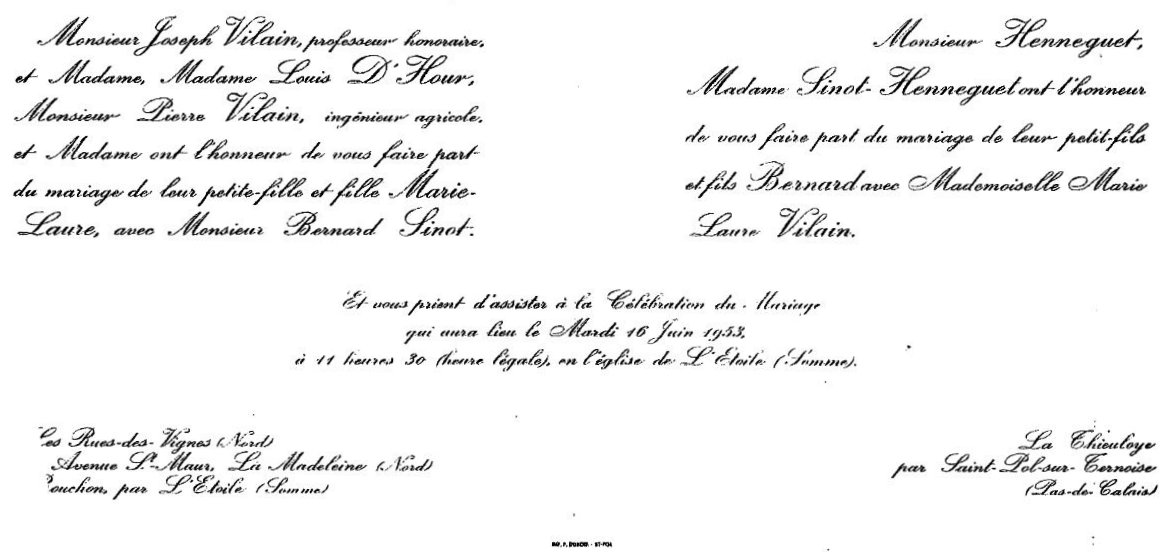 Monsieur Joseph Vilain, professeur honoraire,
et Madame, Madame Louis D'Hour,
Monsieur Pierre Vilain, ingénieur agricole,
et Madame ont l'honneur de vous faire part
du mariage de leur petite-fille et fille Marie-
Laure, avec Monsieur Bernard Sinot.
Monsieur Henneguet,
Madame Sinot-Henneguet ont l'honneur
de vous faire part du mariage de leur petit-fils
et fils Bernard avec Mademoiselle Marie
Laure Vilain.
Et vous prient d'assister à la Célébration du Mariage
qui aura lieu le Mardi 16 Juin 1953,
à 11 heures 30 (heure légale), en l'église de L'Etoile (Somme).
Les Rues-des-Vignes (Nord)
Avenue St-Maur, La Madeleine (Nord)
Bouchon, par L'Etoile (Somme)
La Thieuloye
par Saint-Pol-sur-Ternoise
(Pas-de-Calais)